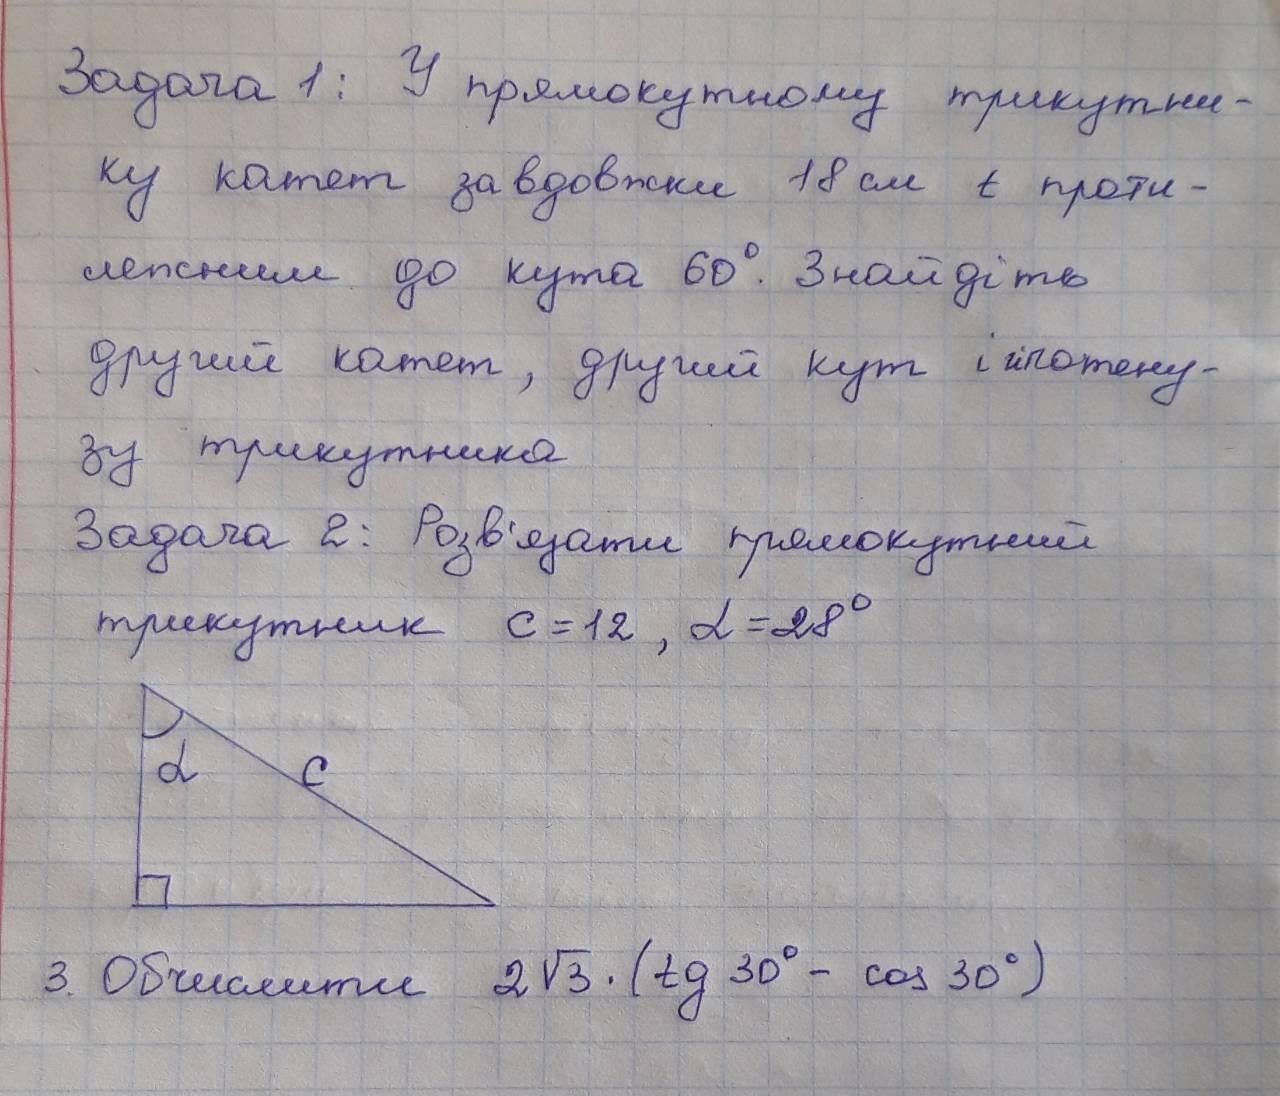 Задача 1: У прямокутному трикутни-
ку катет завдовжки 18 см є проти-
лежним до кута 60°. Знайдіть
другий катет, другий кут і гіпотену-
зу трикутника
Задача 2: Розв'язати прямокутний
трикутник c = 12, α = 28°
α
c
3. Обчислити 2√3 · (tg 30° - cos 30°)